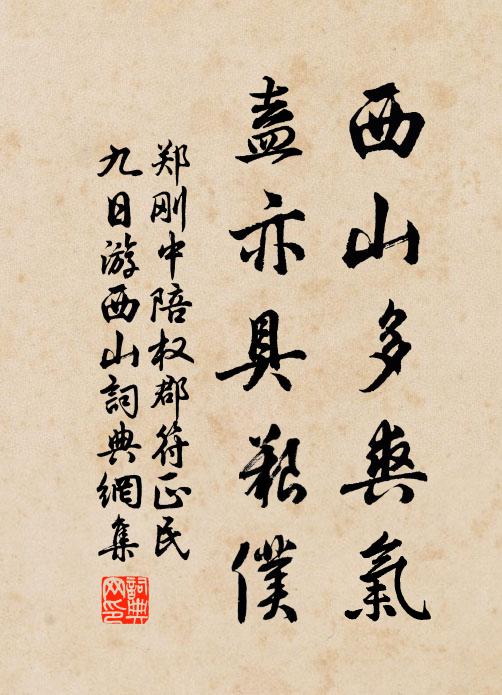 西山多爽氣
盍亦具艱僕
郑刚中陪权郡符正民
九日游西山詞典網集
詞典网印